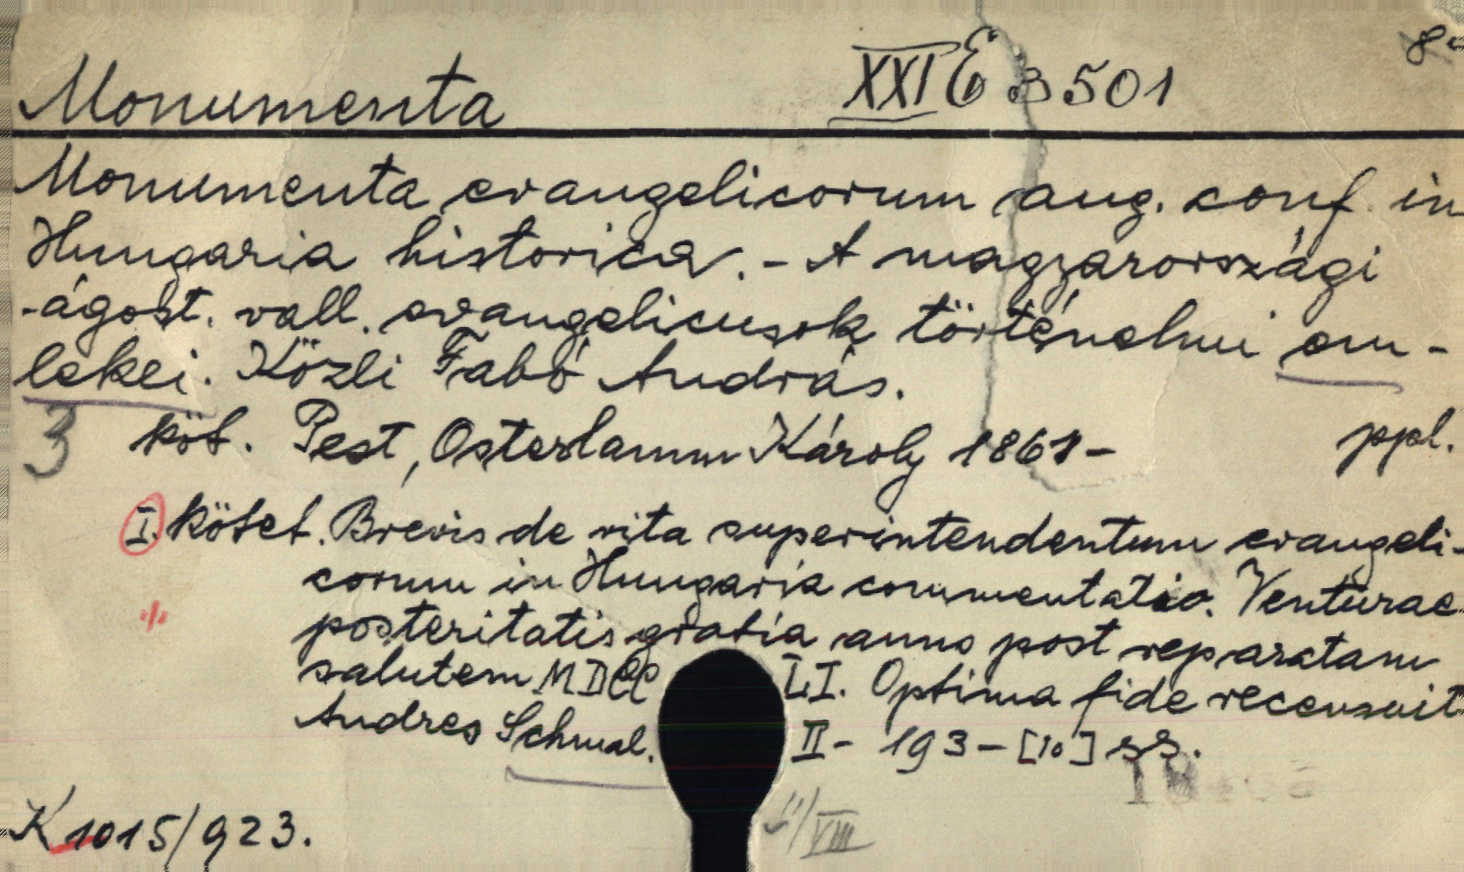 8°
Monumenta XXI E 3501
Monumenta evangelicorum aug. conf. in
Hungaria historica. - A magyarországi
-ágost. vall. evangelicusok történelmi em-
lekei. Közli Fabó András.
3 köt. Pest, Osterlamm Károly 1861- ppl.
I. kötet. Brevis de vita superintendentum evangeli-
corum in Hungaria commentatio. Venturae
posteritatis gratia anno post reparatam
salutem MDCC LI. Optima fide recensuit
Andres Schmal. II - 193 - [10] ss.
K 1015/923. /VIII